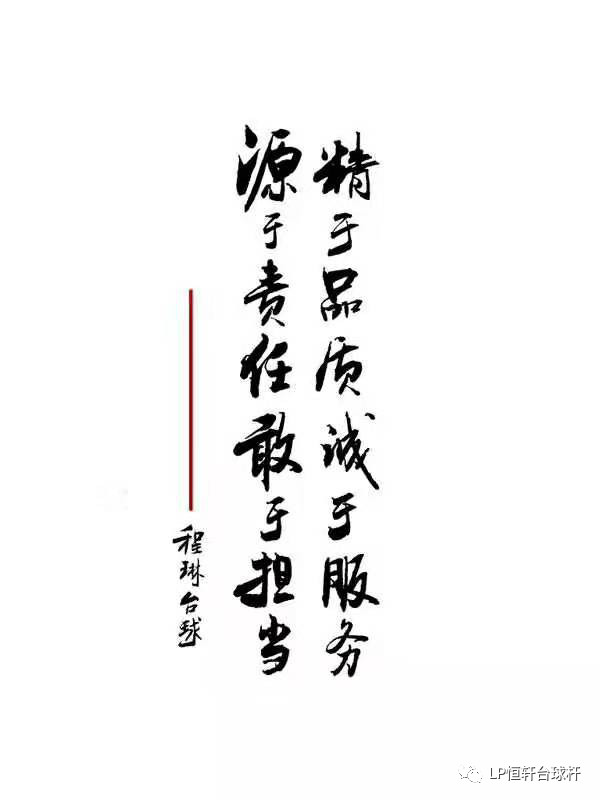 精于品质诚于服务
源于责任敢于担当
程琳台球
LP恒轩台球杆